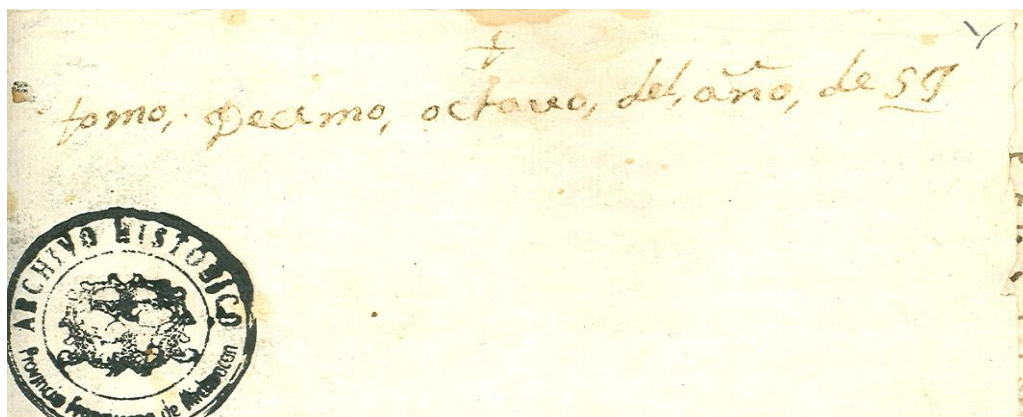 tomo, Decimo, octavo, del, año, de 59
ARCHIVO HISTORICO
Provincia Franciscana de Michoacán